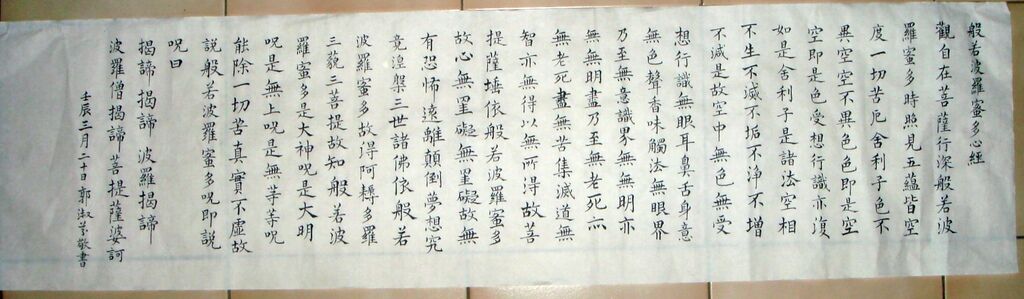 般若波羅蜜多心經
觀自在菩薩行深般若波
羅蜜多時照見五蘊皆空
度一切苦厄舍利子色不
異空空不異色色即是空
空即是色受想行識亦復
如是舍利子是諸法空相
不生不滅不垢不淨不增
不減是故空中無色無受
想行識無眼耳鼻舌身意
無色聲香味觸法無眼界
乃至無意識界無無明亦
無無明盡乃至無老死亦
無老死盡無苦集滅道無
智亦無得以無所得故菩
提薩埵依般若波羅蜜多
故心無罣礙無罣礙故無
有恐怖遠離顛倒夢想究
竟涅槃三世諸佛依般若
波羅蜜多故得阿耨多羅
三藐三菩提故知般若波
羅蜜多是大神呪是大明
呪是無上呪是無等等呪
能除一切苦真實不虛故
說般若波羅蜜多呪即說
呪曰
揭諦 揭諦 波羅揭諦
波羅僧揭諦 菩提薩婆訶
壬辰三月二十日郭淑敬書